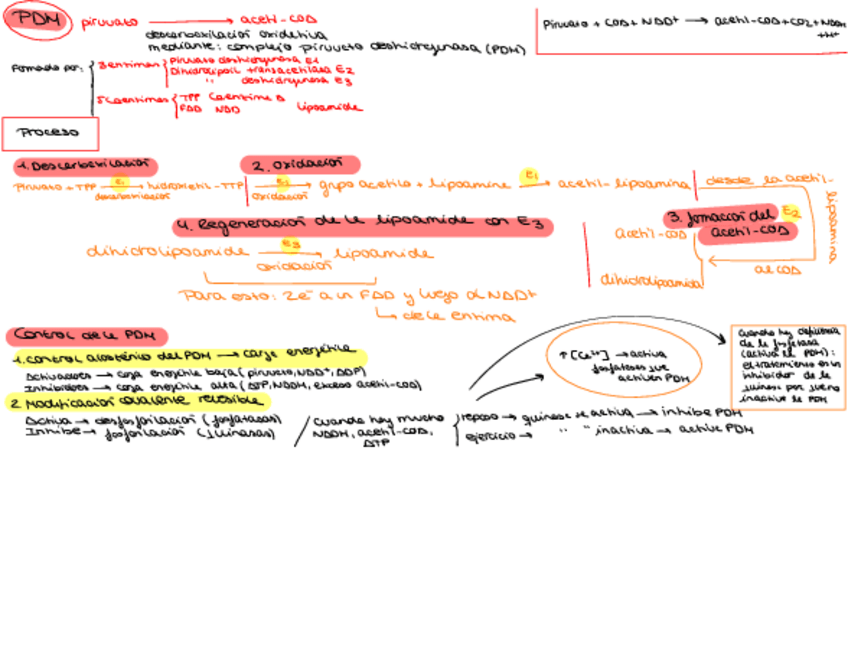 PDH
piruvato → aceti-COA
descarboxilación oxidativa
mediante: complejo piruvato deshidrogenasa (PDH)
Piruvato + COA + NAD+ → acetil-COA + CO2 + NADH
+H+
Formado por:
3 enzimas
Piruvato deshidrogenasa E1
Dihidrolipoil transacetilasa E2
" deshidrogenasa E3
5 Coenzimas
TPP Coenzima A
FAD NAD Lipoamida
Proceso
1. Descarboxilación
Piruvato + TPP → hidroxietil-TPP
E1
descarboxilación
2. Oxidación
E1
oxidación
→ grupo acetilo + lipoamina
E1
→ acetil-lipoamina
desde la acetil-
lipoamina
3. formación del E2
acetil-COA
acetil-COA
al COA
dihidrolipoamida
4. Regeneración de la lipoamida con E3
dihidrolipoamida → lipoamida
E3
oxidación
Para esto: 2e- a un FAD y luego al NAD+
↳ de la enzima
Control de la PDH
1. Control alostérico del PDH → carga energética
Activadores → carga energética baja (piruvato, NAD+, ADP)
Inhibidores → carga energética alta (ATP, NADH, exceso acetil-COA)
2 Modificación covalente reversible
Activa → desfosforilación (fosfatasas)
Inhibe → fosforilación (quinasas)
Cuando hay mucho
NADH, acetil-COA,
ATP
reposo → quinasa se activa → inhibe PDH
ejercicio → " " inactiva → activa PDH
↑ [Ca2+] → activa
fosfatasas que
activan PDH
Cuando hay deficiencia
de la fosfatasa
(activa la PDH):
el tratamiento es un
inhibidor de la
quinasa por
inactiva la PDH